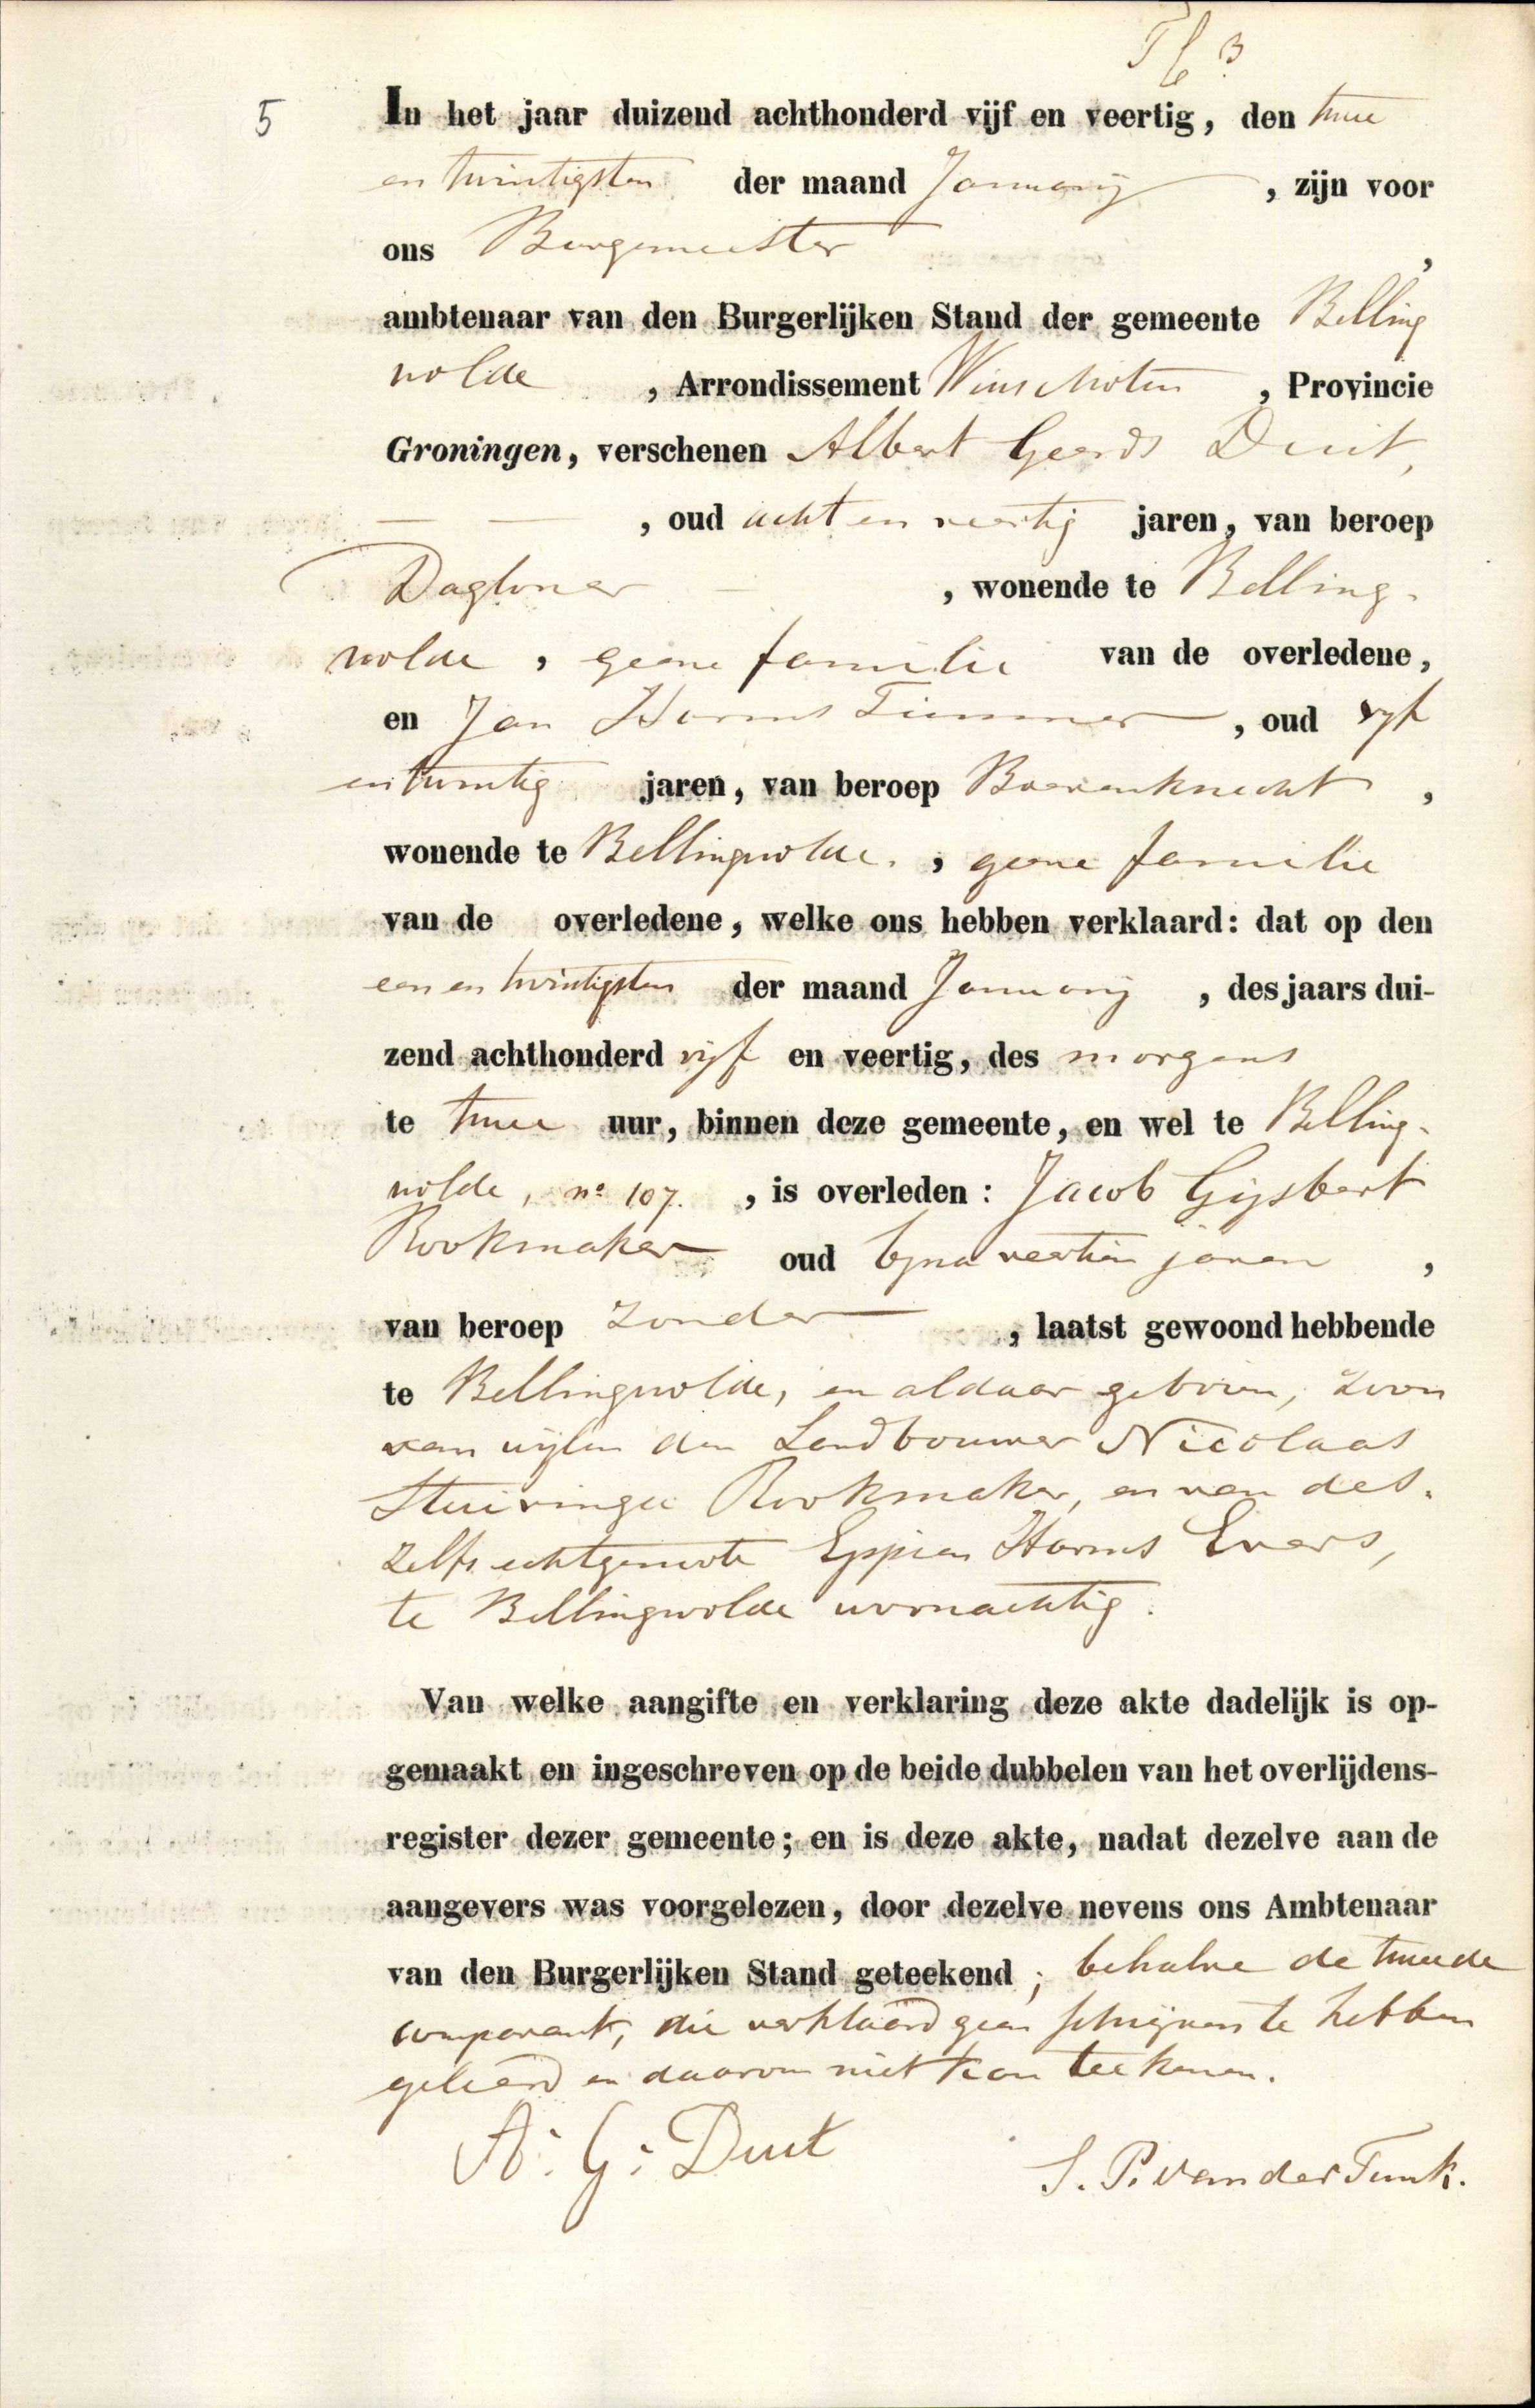 5
In het jaar duizend achthonderd vijf en veertig, den twee
en twintigsten der maand Januarij, zijn voor
ons Burgemeester,
ambtenaar van den Burgerlijken Stand der gemeente Belling
wolde, Arrondissement Winschoten, Provincie
Groningen, verschenen Albert Geerds Duit,
— —, oud acht en veertig jaren, van beroep
Dagloner —, wonende te Belling-
wolde, geene familie van de overledene,
en Jan Harms Timmer, oud vyf
en twintig jaren, van beroep Boerenknecht,
wonende te Bellingwolde., geene familie
van de overledene, welke ons hebben verklaard: dat op den
een en twintigsten der maand Januarij, des jaars dui-
zend achthonderd vijf en veertig, des morgens
te twee uur, binnen deze gemeente, en wel te Belling-
wolde, no 107., is overleden: Jacob Gijsbert
Rookmaker oud byna veertien jaren,
van beroep zonder, laatst gewoond hebbende
te Bellingwolde, en aldaar geboren, zoon
van wijlen den Landbouwer Nicolaas
Stuivinga Rookmaker, en van des-
zelfs echtgenoote Eppien Harms Evers,
te Bellingwolde woonachtig.
Van welke aangifte en verklaring deze akte dadelijk is op-
gemaakt en ingeschreven op de beide dubbelen van het overlijdens-
register dezer gemeente; en is deze akte, nadat dezelve aan de
aangevers was voorgelezen, door dezelve nevens ons Ambtenaar
van den Burgerlijken Stand geteekend; behalve de tweede
comparant, die verklaard geen schrijven te hebben
geleerd en daarom niet kan teekenen.
A: G: Duit
S. P. van der Tuuk.